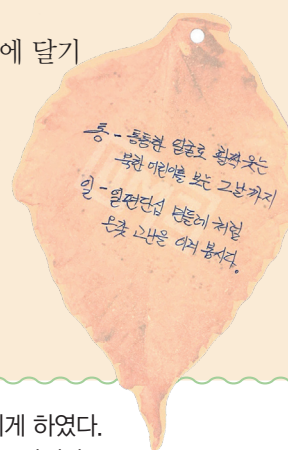 에 달기
통 - 통통한 얼굴로 활짝 웃는
북한 어린이를 보는 그날까지
일 - 일편단심 민들레 처럼
온갖 고난을 이겨 봅시다.
게 하였다.